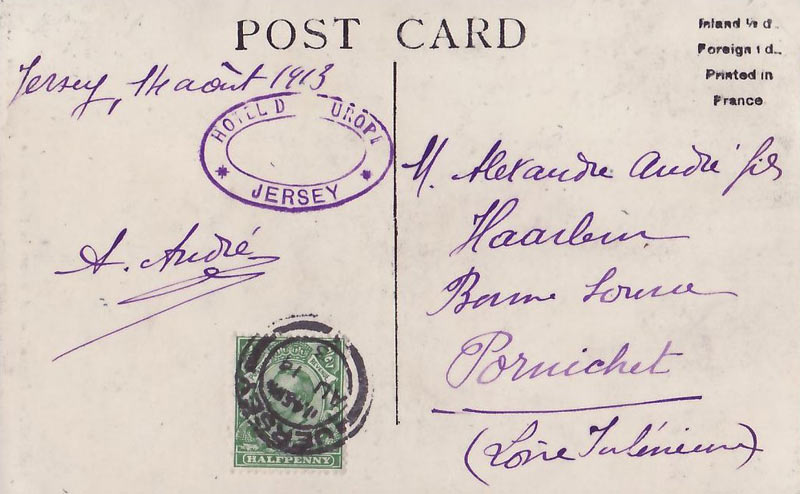 POST CARD
Inland ½ d.
Foreign 1 d..
Printed in
France
Jersey, 14 août 1913
HOTEL D UROPE
JERSEY
M. Alexandre André fils
Haarlem
Bonne Source
Pornichet
(Loire Inférieure)
A. André
JERSEY
AU
13
HALFPENNY